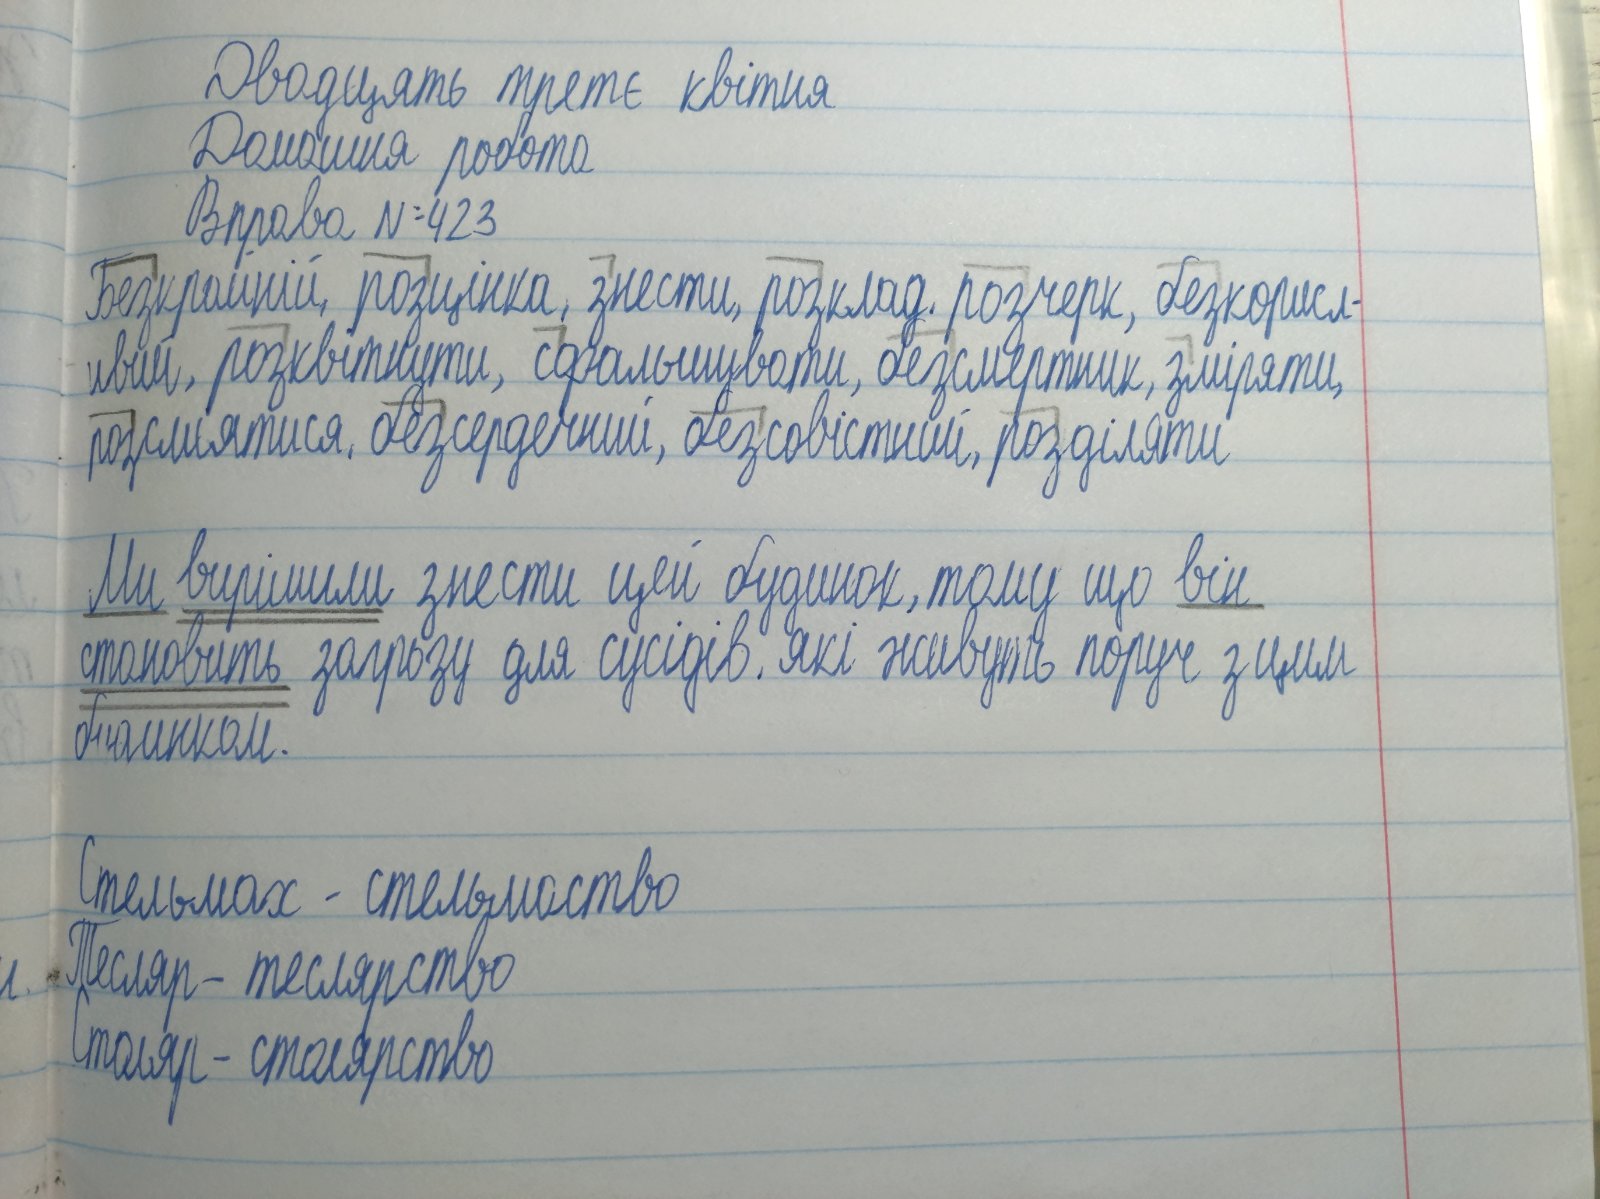 Двадцять третє квітня
Домашня робота
Вправа №423
Безкраїній, розцінка, знести, розклад. розчерк, безкорисл-
ивий, розквітнути, сфальшувати, безсмертник, зміряти,
розсміятися, безсердечний, безсовістний, розділяти
Ми вирішили знести цей будинок, тому що він
становить загрозу для сусідів. які живуть поруч з цим
будинком.
Стельмах - стельмаство
Тесляр - теслярство
Столяр - столярство